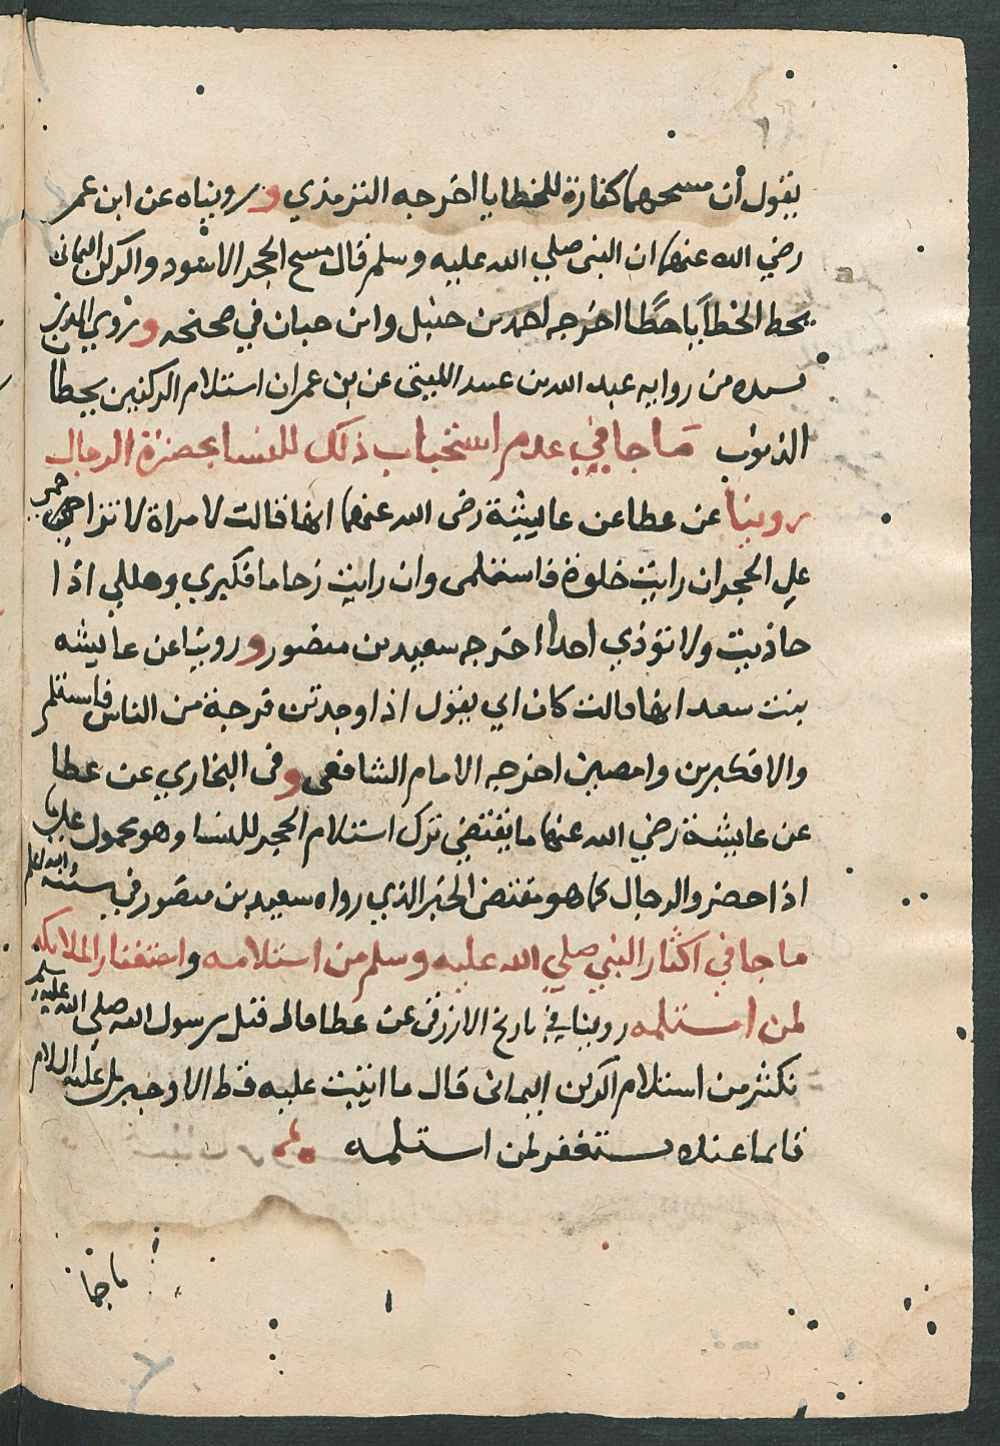 يقول أن مسحهما كفارة للخطايا اخرجه الترمذي ورويناه عن ابن عمر
رضي الله عنهما ان النبي صلي الله عليه وسلم قال مسح الحجر الاسود والركن اليمانى
يحط الخطاًيا حطًا اخرجه احمد بن حنبل وابن حبان في صحيحه وتروي
بسنده من روايه عبد الله بن عبيد الليثى عن بن عمر ان استلام الركنين يحطا
الذنوب ما جا في عدم استحباب ذلك للنسا بحضرة الرجال
روينا عن عطا عن عاييشة رضى الله عنهما انها قالت لامراة لا تزاحمى
علي الحجر ان رايت خلوة فاستلمى وان رايت زحاما فكبري وهللي اذا
حاذيت ولا تؤذي احدا اخرجه سعيد بن منصور وروينا عن عايشه
بنت سعد انها قالت كان ابي يقول اذا وجدتن فرجة من الناس فاستلم
والا فكبرن وامضين اخرجه الامام الشافعى وفى البخاري عن عطا
عن عاييشة رضي الله عنها ما يقتضي ترك استلام الحجر للنسا وهو محمول علي ما
اذا حضر والرجال كما هو مقتضى الخبر الذي رواه سعيد بن منصور في سننه والله اعلم
ما جا في اكثار النبي صلي الله عليه وسلم من استلامه واستغفار الملايكه
لمن استلمه روينا في تاريخ الازرقى عن عطا قال قيل يرسول الله صلي الله عليه وسلم
تكثر من استلام الركن اليمانى قال ما اتيت عليه قط الا وجبريل عليه السلام
قايما عنده يستغفر لمن استلمه
ما جا